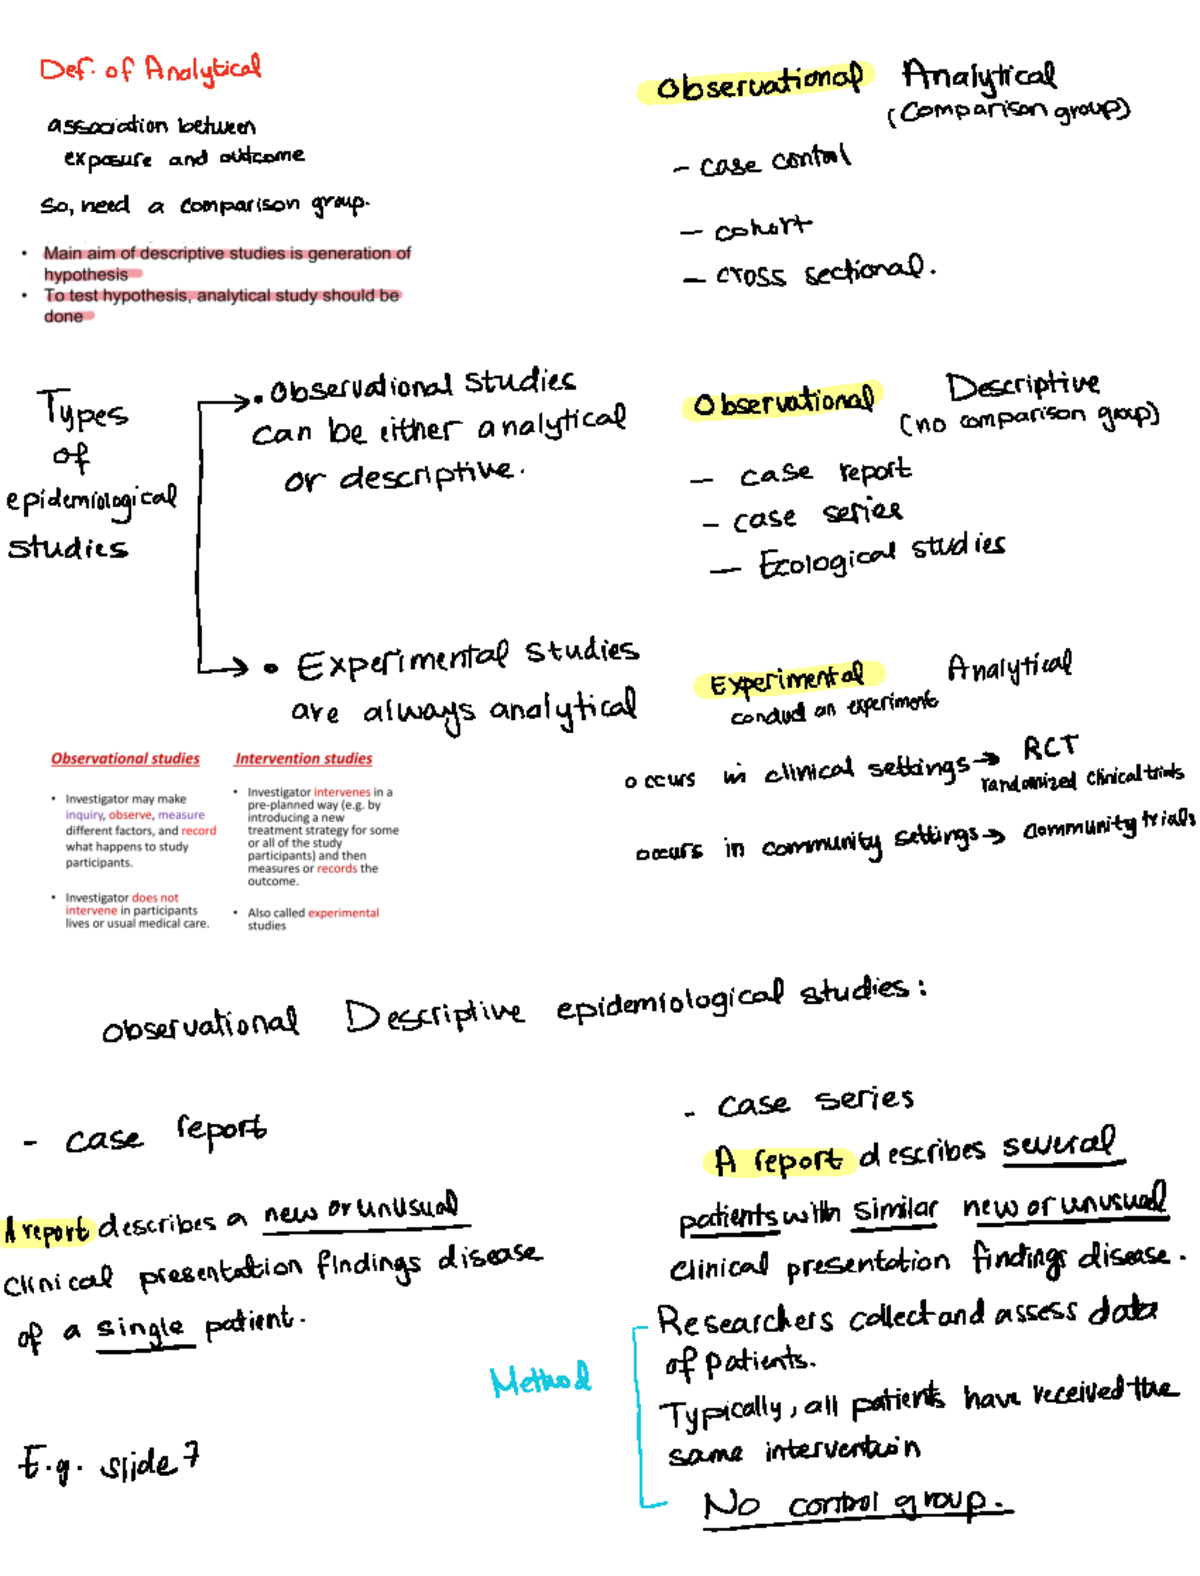 Def. of Analytical
association between
exposure and outcome
so, need a comparison group.
• Main aim of descriptive studies is generation of
hypothesis
• To test hypothesis, analytical study should be
done
Observational Analytical
(comparison group)
- case control
- cohort
- cross sectional.
Types
of
epidemiological
studies
• Observational studies
can be either analytical
or descriptive.
• Experimental studies
are always analytical
Observational Descriptive
(no comparison group)
- case report
- case series
- Ecological studies
Experimental Analytical
conduct an experiment
occurs in clinical settings → RCT
randomized clinical trials
occurs in community settings → community trials
Observational studies
• Investigator may make
inquiry, observe, measure
different factors, and record
what happens to study
participants.
• Investigator does not
intervene in participants
lives or usual medical care.
Intervention studies
• Investigator intervenes in a
pre-planned way (e.g. by
introducing a new
treatment strategy for some
or all of the study
participants) and then
measures or records the
outcome.
• Also called experimental
studies
observational Descriptive epidemiological studies:
- case report
A report describes a new or unusual
clinical presentation findings disease
of a single patient.
E.g. slide 7
- case series
A report describes several
patients with similar new or unusual
clinical presentation findings disease.
Method
Researchers collect and assess data
of patients.
Typically, all patients have received the
same intervention
No control group.